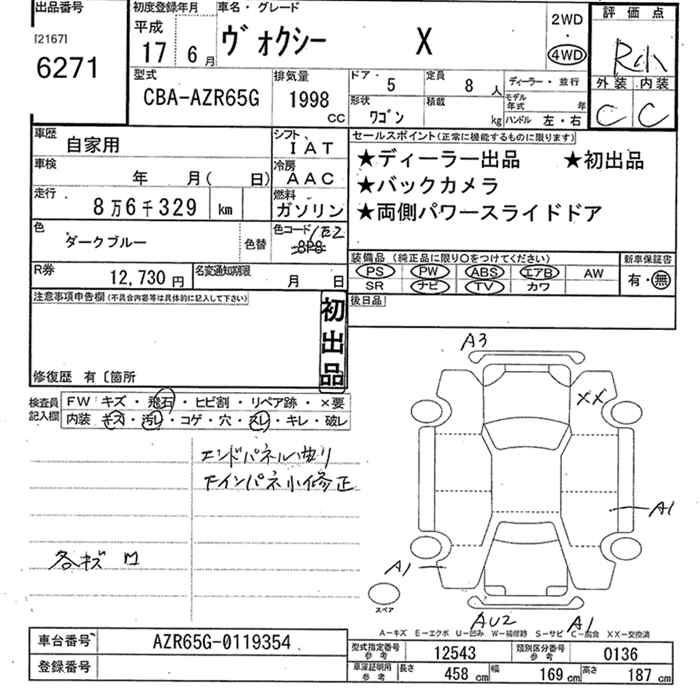 出品番号
[2167]
6271
初度登録年月
平成
17 6月
車名・グレード
ヴォクシー X
2WD
・
4WD
評価点
R小
外装 内装
C C
型式
CBA-AZR65G
排気量
1998 cc
ドア・ 5
定員 8 人
ディーラー・並行
形状 ワゴン
積載 kg
モデル年式 年
ハンドル 左・右
車歴 自家用
シフト IAT
車検 年 月( 日)
冷房 AAC
走行 8万6千329 km
燃料 ガソリン
色 ダークブルー 色替
色コード 1E2
8P8
R券 12,730円
名変通知期限 月 日
セールスポイント(正常に機能するものに限ります)
★ディーラー出品 ★初出品
★バックカメラ
★両側パワースライドドア
装備品 (純正品に限り○をつけてください)
PS PW ABS エアB AW
SR ナビ TV カワ
新車保証書
有・無
後日品
注意事項申告欄(不具合内容等は具体的に記入して下さい)
初出品
修復歴 有〔箇所
検査員記入欄
FW キズ・飛石・ヒビ割・リペア跡・×要
内装 キズ・汚レ・コゲ・穴・スレ・キレ・破レ
エンドパネル曲り
下インパネ小修正
各キズ
A3
XX
A1
A1
AU2
A1
スペア
A-キズ E-エクボ U-凹み W-補修跡 S-サビ C-腐食 XX-交換済
車台番号 AZR65G-0119354
登録番号
型式指定番号 参考 12543
類別区分番号 参考 0136
車庫証明用 参考 長さ 458 cm 幅 169 cm 高さ 187 cm